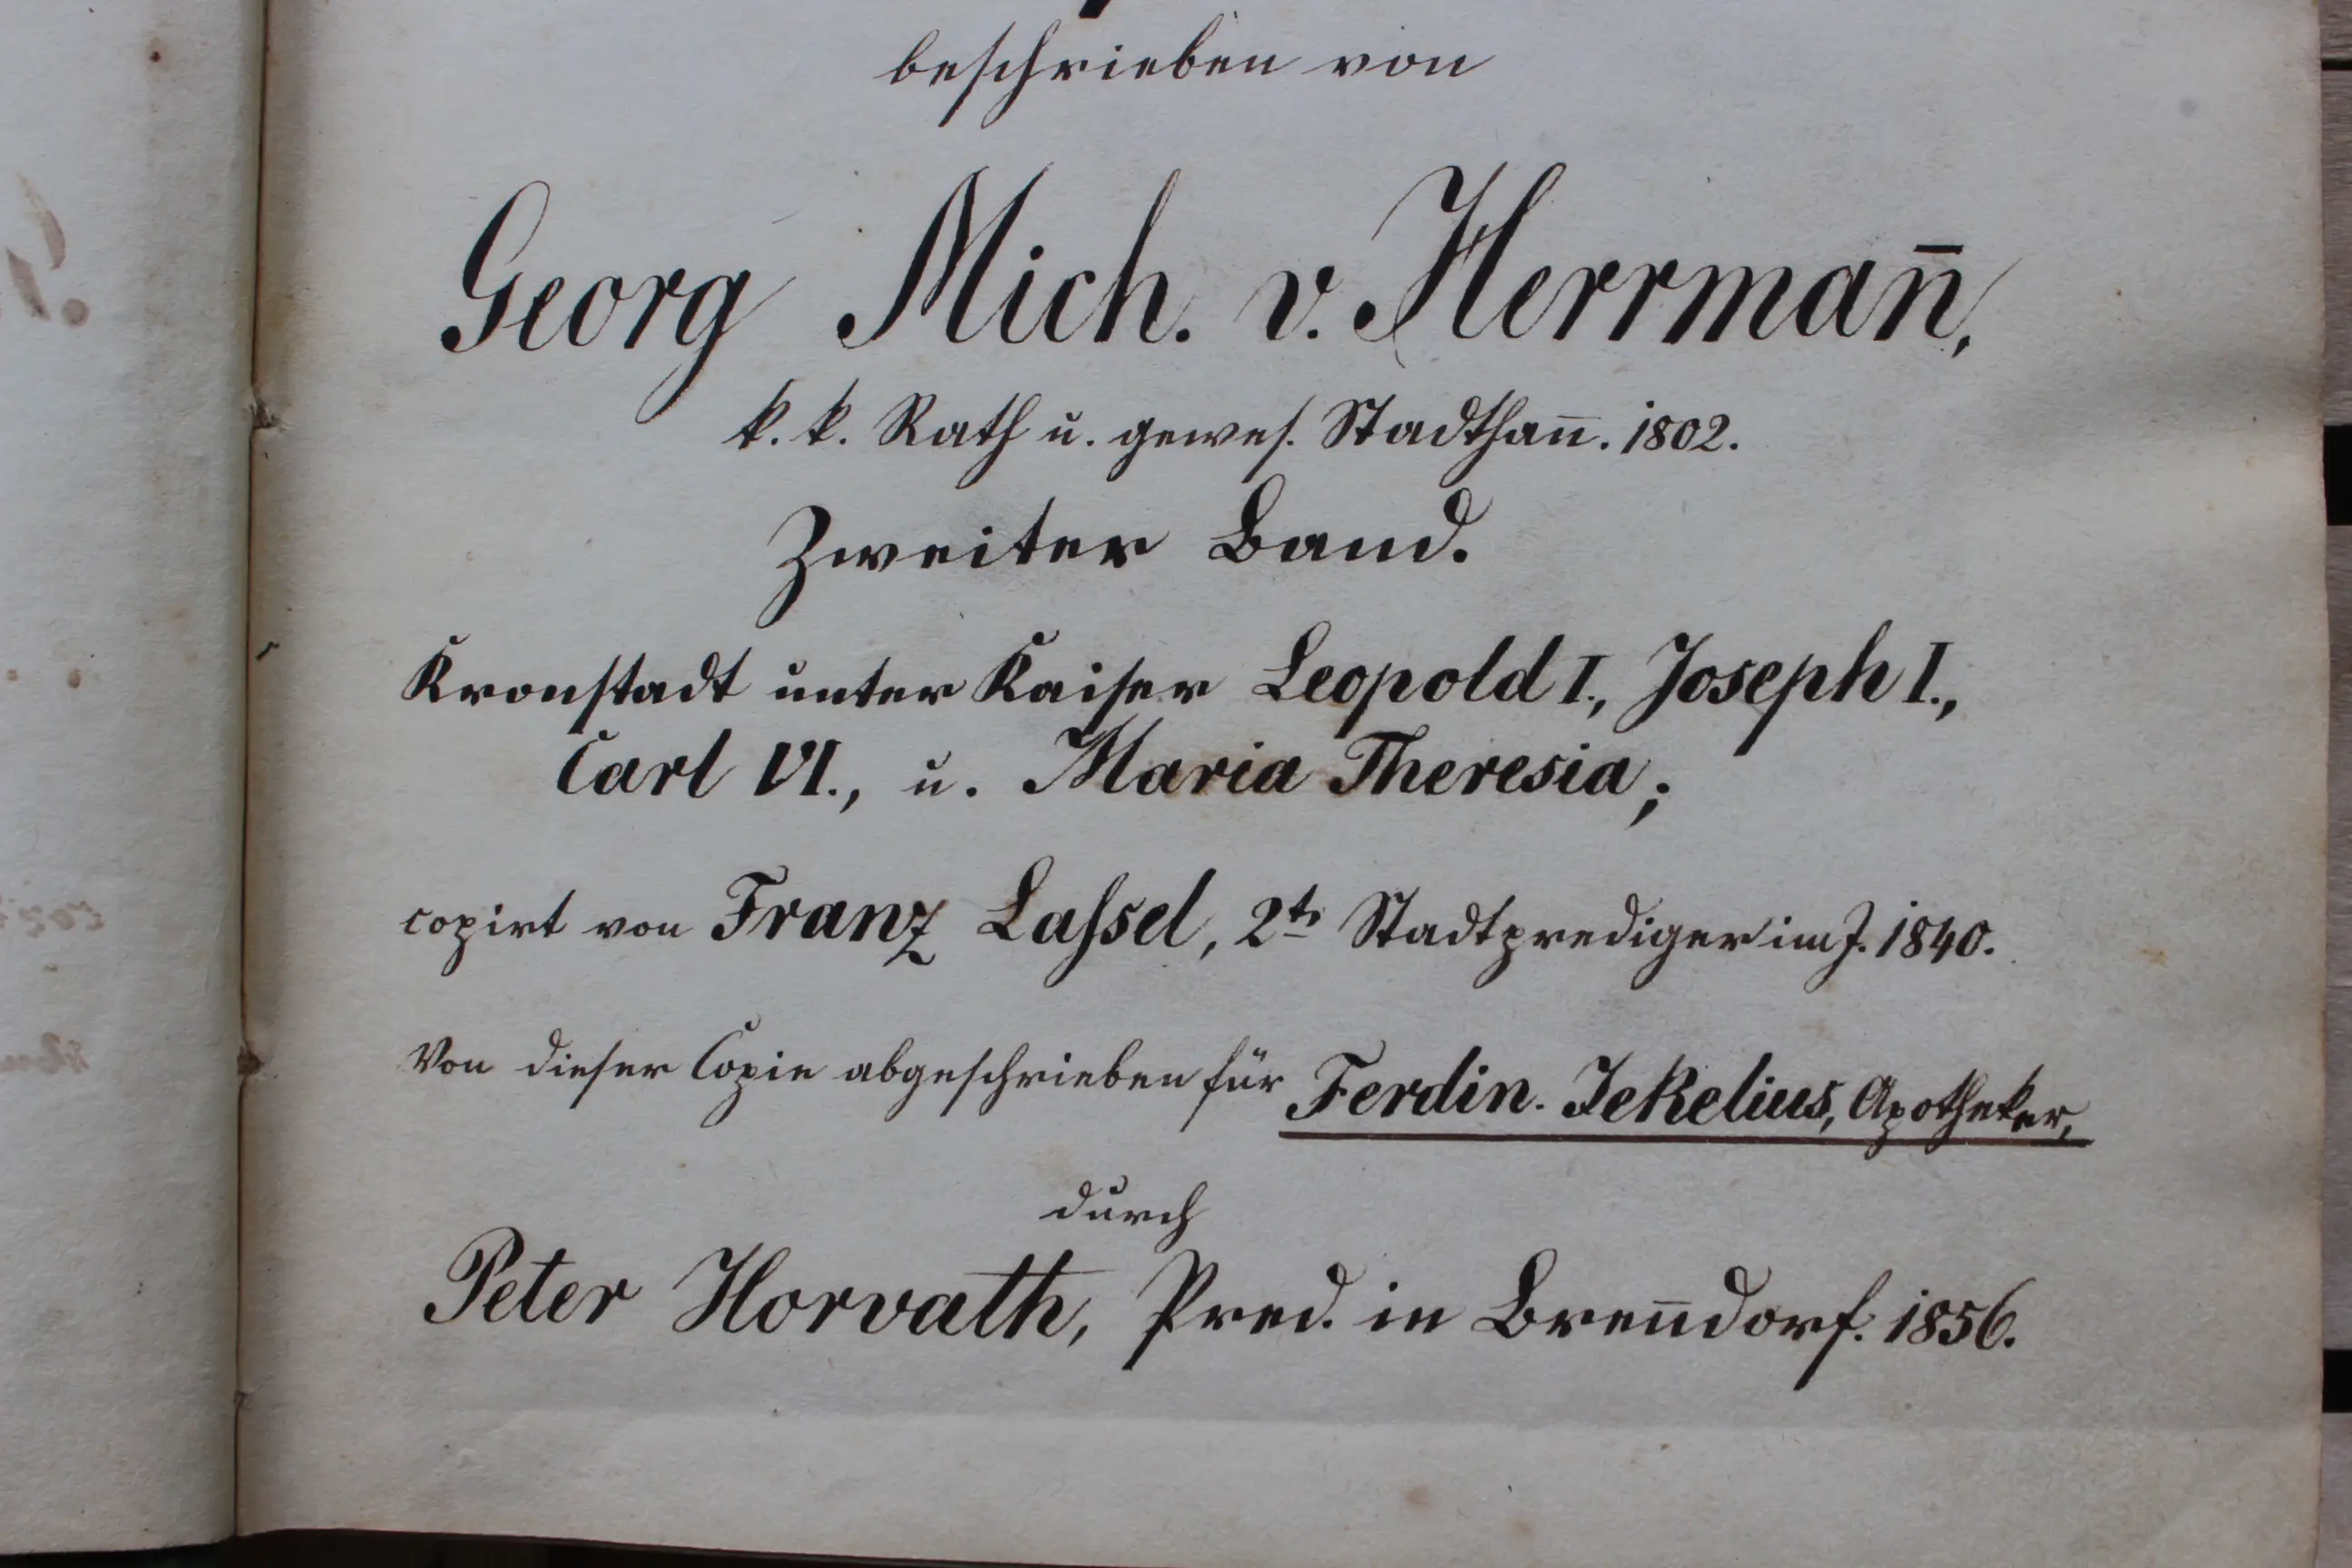 beschrieben von
Georg Mich. v. Herrman̄,
k. k. Rath u. gewes. Stadthan̄. 1802.
Zweiter Band.
Kronstadt unter Kaiser Leopold I., Joseph I.,
Carl VI., u. Maria Theresia;
copirt von Franz Laſsel, 2tr Stadtprediger im J. 1840.
Von dieser Copie abgeschrieben für Ferdin. Jekelius, Apotheker,
durch
Peter Horvath, Pred. in Bren̄dorf. 1856.